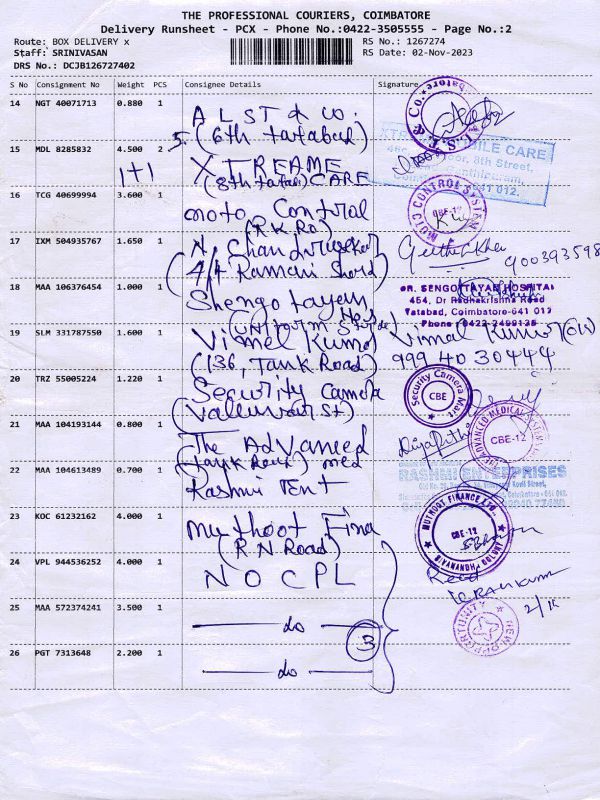 THE PROFESSIONAL COURIERS, COIMBATORE
Delivery Runsheet - PCX - Phone No.:0422-3505555 - Page No.:2
Route: BOX DELIVERY x
RS No.: 1267274
Staff: SRINIVASAN
RS Date: 02-Nov-2023
DRS No.: DCJB126727402
S No Consignment No Weight PCS Consignee Details Signature
14 NGT 40071713 0.880 1
A L ST & Co.
(6th tatabad)
15 MDL 8285832 4.500 2
1+1
XTREAME
(8th tatab) CARE
MOBILE CARE
8th Street,
16 TCG 40699994 3.600 1
moto Control
(R.K. Ro)
MOTO CONTROL SYSTEM
CBE-12
17 IXM 504935767 1.650 1
N. Chandrasekar
(4/4 Ramani Shord)
Geetha
900393598
18 MAA 106376454 1.000 1
Shengotayan
Hos
DR. SENGOTTAYAN HOSPITAL
454, Dr Radhakrishna Road
Tatabad, Coimbatore-641 012
Phone :0422-2499125
19 SLM 331787550 1.600 1
(uniform
Vimel Kumar
(136, Tank Road)
Vimal Kumar
999 40 30444
20 TRZ 55005224 1.220 1
Security Camera
(Valluvar St)
Security Camera Mart
CBE
21 MAA 104193144 0.800 1
The Advanced
(tank Road) med
Divya
ADVANCED MEDICAL SYSTEMS
CBE-12
22 MAA 104613489 0.700 1
Rashmi Tent
RASHMI ENTERPRISES
23 KOC 61232162 4.000 1
Muthoot Fina
(R N Road)
MUTHOOT FINANCE LTD.,
CBE-12
SIVANANDHA COLONY
24 VPL 944536252 4.000 1
NOCPL
Recd
2/11
25 MAA 572374241 3.500 1
do
3
NEW OPPORTUNITY
26 PGT 7313648 2.200 1
do